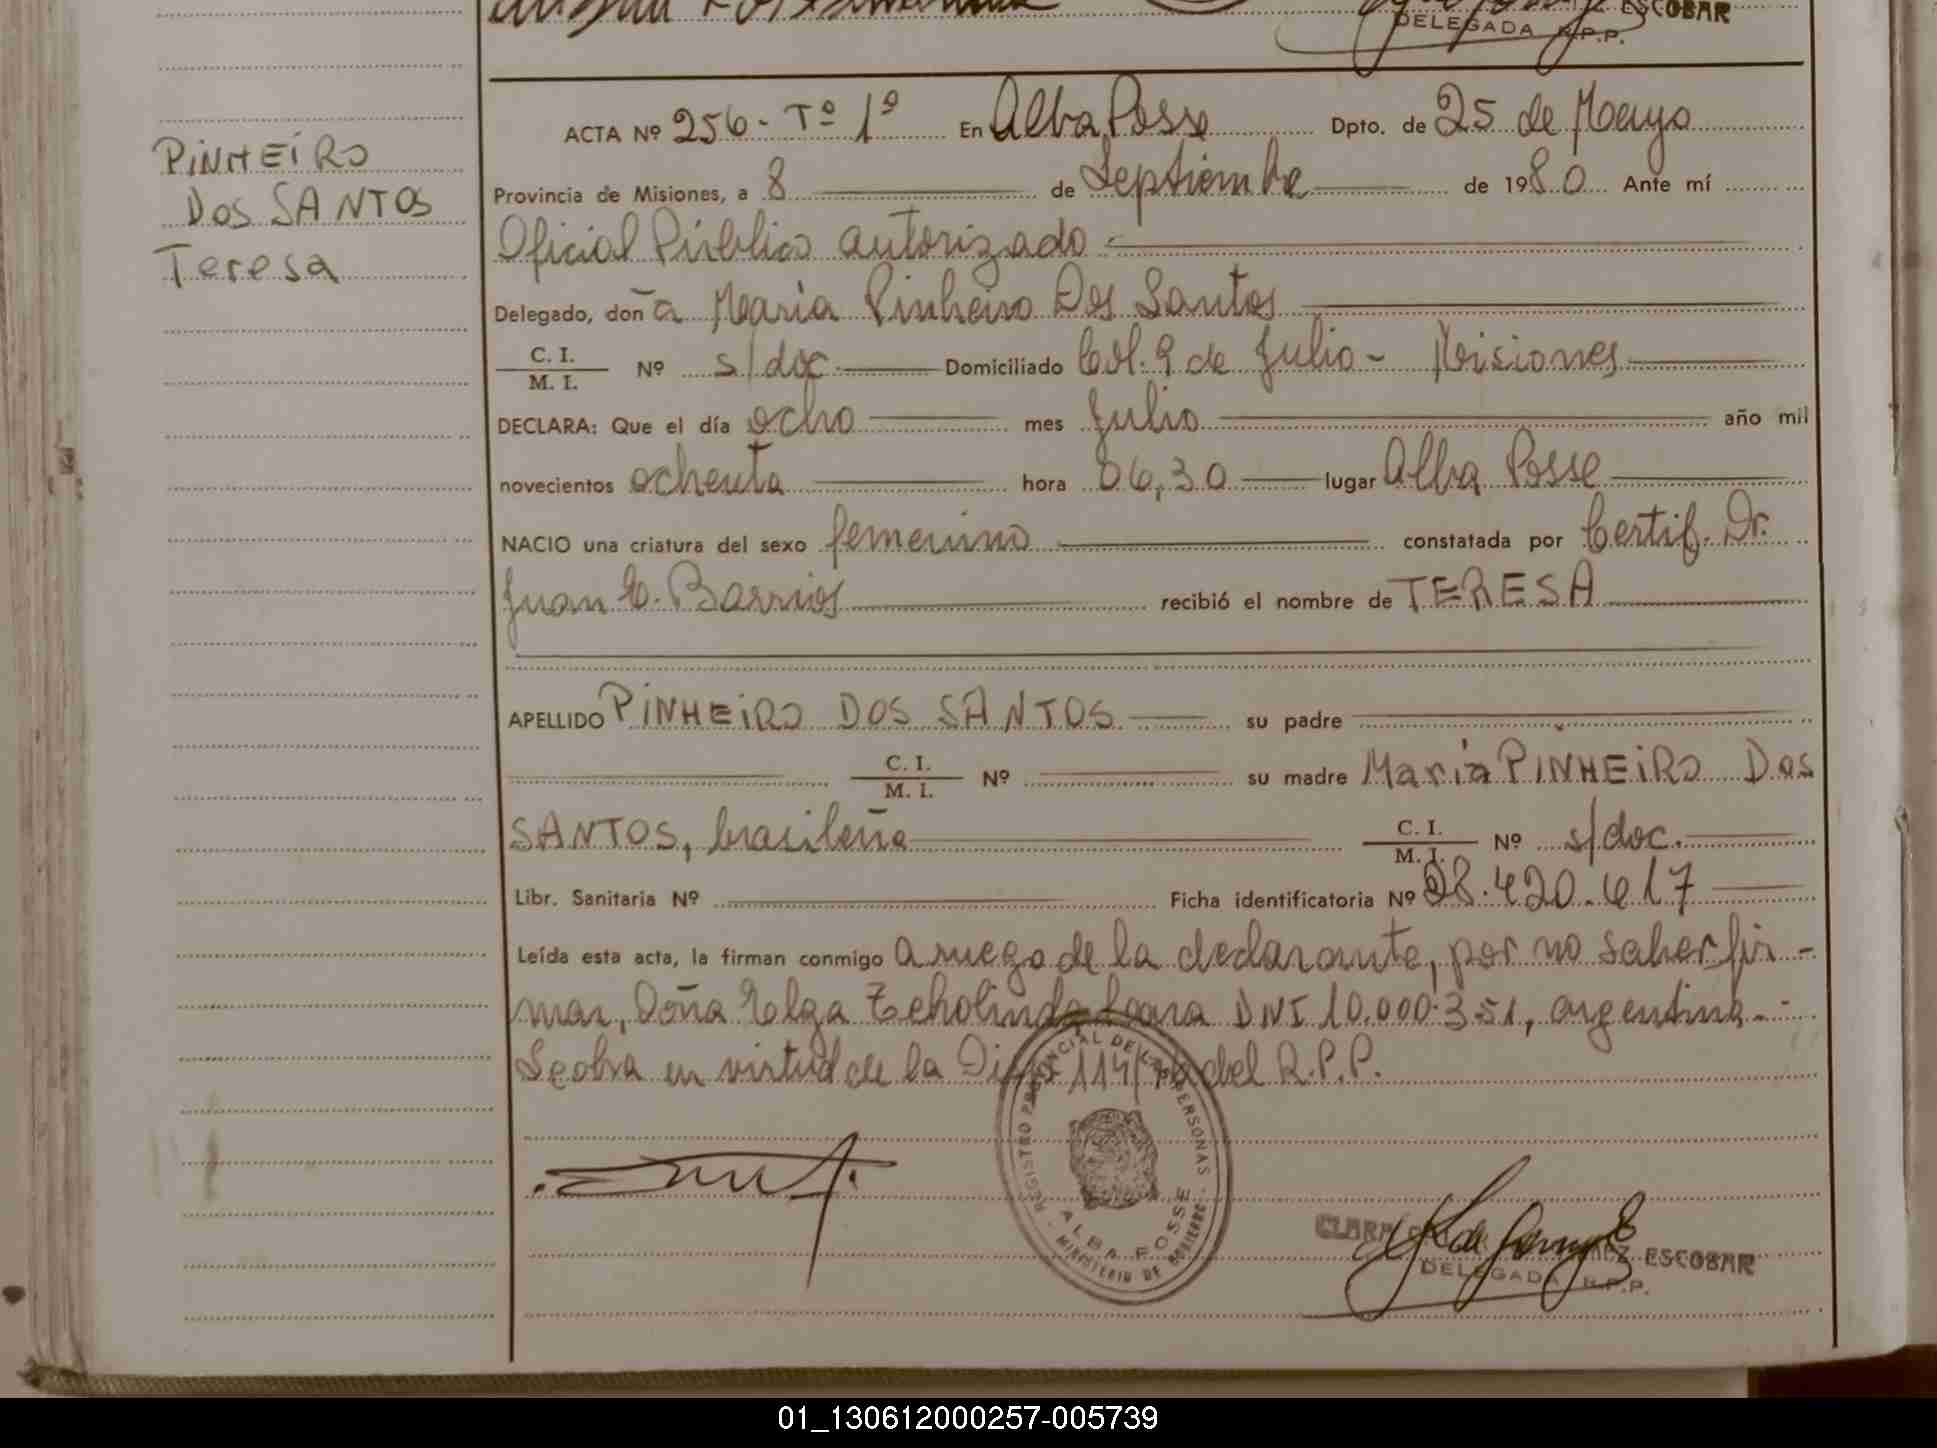 ESCOBAR
DELEGADA R.P.P.
PINHEIRO
DOS SANTOS
Teresa
ACTA Nº 256 - Tº 1º En Alba Posse Dpto. de 25 de Mayo
Provincia de Misiones, a 8 de Septiembre de 1980 Ante mí
Oficial Público autorizado
Delegado, doña María Pinheiro Dos Santos
C. I.
M. I. Nº s/doc Domiciliado Col. 9 de Julio - Misiones
DECLARA: Que el día ocho mes Julio año mil
novecientos ochenta hora 06,30 lugar Alba Posse
NACIO una criatura del sexo femenino constatada por Certif. Dr.
Juan C. Barrios recibió el nombre de TERESA
APELLIDO PINHEIRO DOS SANTOS su padre
C. I.
M. I. Nº su madre María PINHEIRO DOS
SANTOS, brasileña C. I.
M. I. Nº s/doc.
Libr. Sanitaria Nº Ficha identificatoria Nº 28.420.617
Leída esta acta, la firman conmigo a ruego de la declarante, por no saber fir-
mar, Doña DNI 10.000.351, argentina.-
Se obra en virtud de la R.P.P.
REGISTRO PROVINCIAL DE LAS PERSONAS
ALBA POSSE
MINISTERIO DE GOBIERNO
CLARA ESCOBAR
DELEGADA R.P.P.
01_130612000257-005739